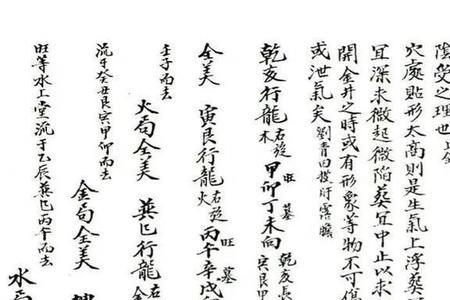 陰葬之理世
穴處貼形太高則是生氣上浮葬
宜深未微起微陷葬宜中止以求
開金井之時或有形象等物不可傷
或泄氣矣 劉青田披肝露膽
乾亥行龍 木 右旋 甲卯丁未向 旺 墓 乾亥長
寅艮甲
全美 寅艮行龍 火 右旋 丙午辛戌 旺 墓
壬子而去 火局全美 巽巳行龍 金 右
流于癸丑艮寅甲卯而去 金局全美
旺等水上堂流于乙辰巽巳丙午而去 水局